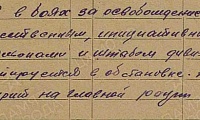 в боях за освобождение
ственным, инициативн
и штабом диви
ируется в обстановке.
на главной